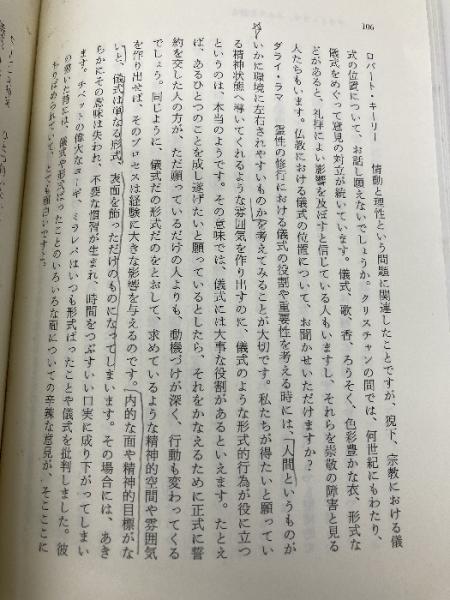 106
ロバート・キーリー　情動と理性という問題に関連したことですが、猊下、宗教における儀
式の位置について、お話し願えないでしょうか。クリスチャンの間では、何世紀にもわたり、
儀式をめぐって意見の対立が続いています。儀式、歌、香、ろうそく、色彩豊かな衣、形式な
どがあると、礼拝によい影響を及ぼすと信じている人もいますし、それらを崇敬の障害と見る
人たちもいます。仏教における儀式の位置について、お聞かせいただけますか？
ダライ・ラマ　霊性の修行における儀式の役割や重要性を考える時には、人間というものが
いかに環境に左右されやすいものかを考えてみることが大切です。私たちが得たいと願ってい
る精神状態へ導いてくれるような雰囲気を作り出すのに、儀式のような形式的行為が役に立つ
というのは、本当のようです。その意味では、儀式には大事な役割があるといえます。たとえ
ば、あるひとつのことを成し遂げたいと願っているとしたら、それをかなえるために正式に誓
約を交した人の方が、ただ願っているだけの人よりも、動機づけが深く、行動も変わってくる
でしょう。同じように、儀式だの形式だのをとおして、求めているような精神的空間や雰囲気
を作り出せば、そのプロセスは経験に大きな影響を与えるのです。内的な面や精神的目標がな
いと、儀式は単なる形式、表面を飾っただけのものになってしまいます。その場合には、あき
らかにその意味は失われ、不要な慣習が生まれ、時間をつぶすいい口実に成り下がってしまい
ます。チベットの偉大なヨーギ、ミラレパはいつも形式ばったことや儀式を批判しました。彼
の書いた詩には、儀式や形式ばったことのいろいろな面についての辛辣な意見が、そこここに
ちりばめられていて、とても面白いですよ。